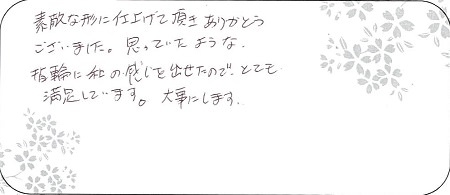 素敵な形に仕上げて頂きありがとう
ございました。思っていたような、
指輪に和の感じを出せたので、とても
満足しています。大事にします。